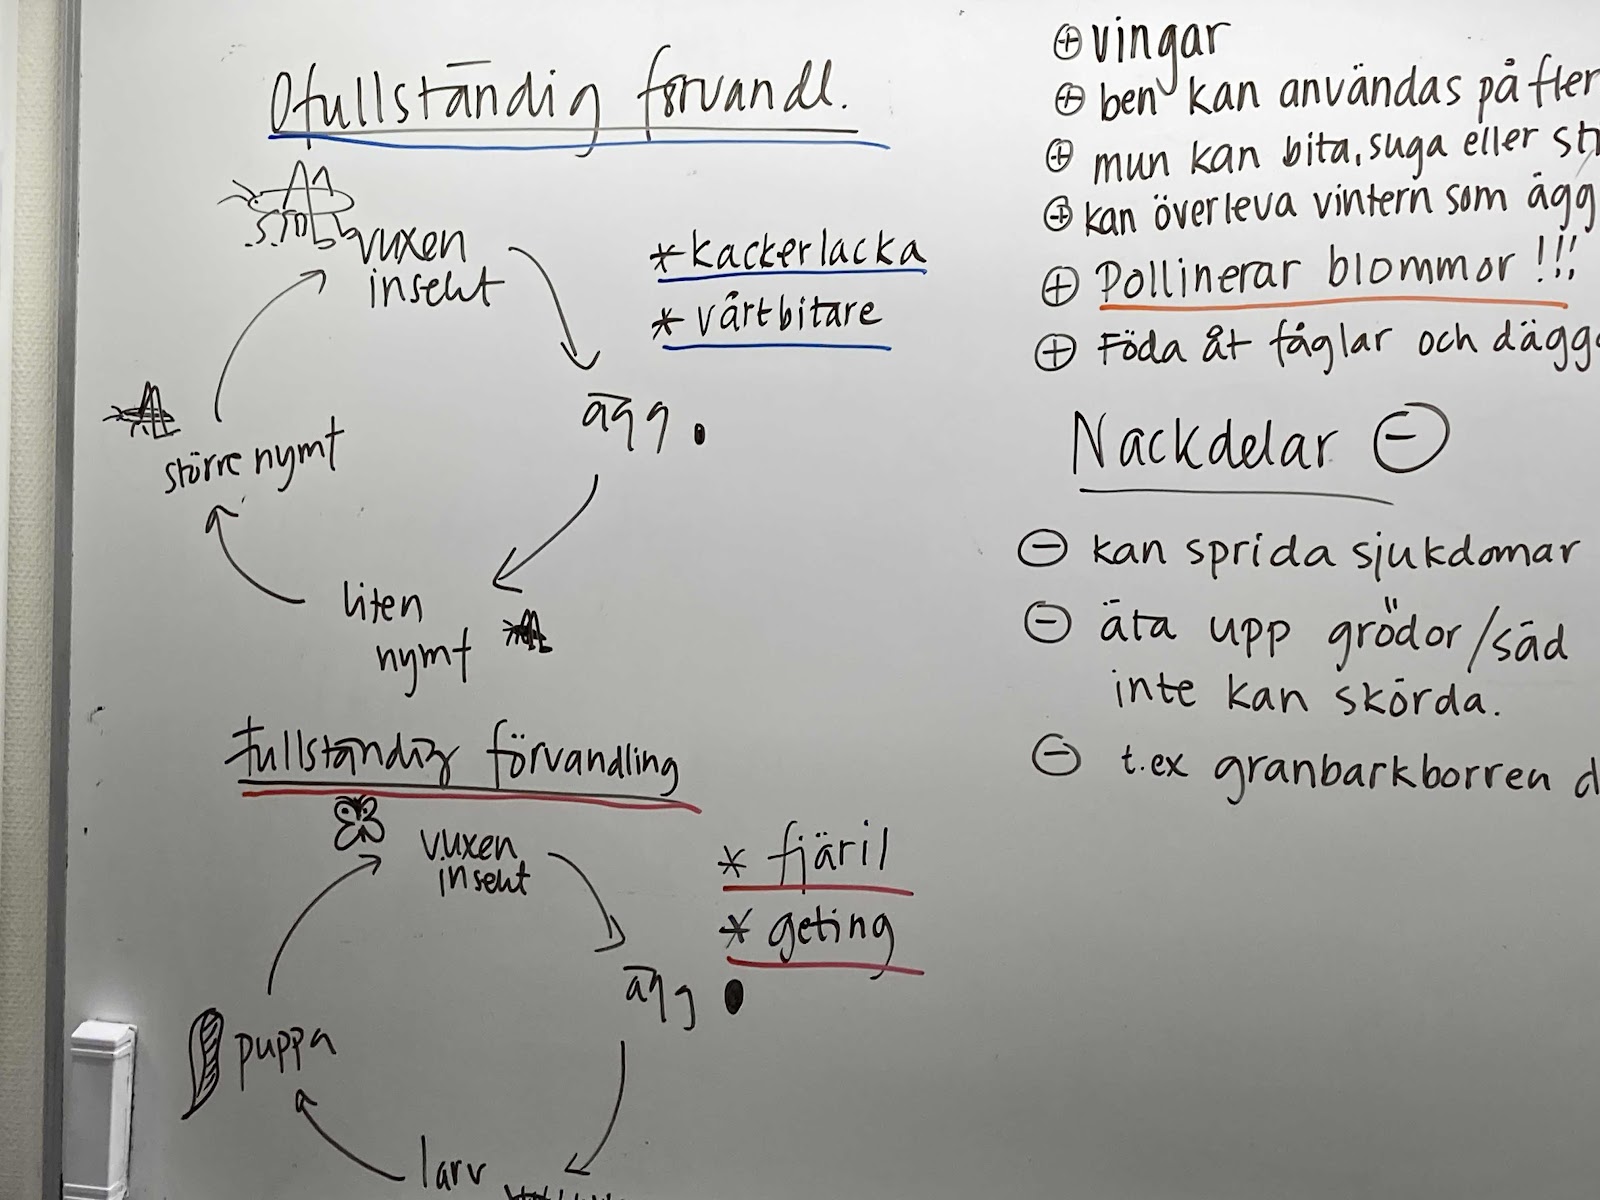 Ofullständig förvandl.
vuxen
insekt
* kackerlacka
* vårtbitare
ägg
större nymf
liten
nymf
fullständig förvandling
vuxen
insekt
* fjäril
* geting
ägg
puppa
larv
+ vingar
+ ben kan användas på fler
+ mun kan bita, suga eller st
+ kan överleva vintern som ägg
+ Pollinerar blommor !!!
+ Föda åt fåglar och dägg
Nackdelar -
- kan sprida sjukdomar
- äta upp grödor/säd
inte kan skörda.
- t.ex granbarkborren d